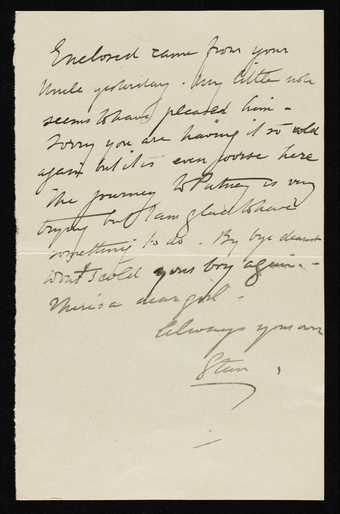 Enclosed came from your
Uncle yesterday. My little note
seems to have pleased him –
Sorry you are having it so cold
again but it is even worse here
The journey to Putney is very
trying but I am glad to have
something to do. By bye dearest
don't scold your boy again –
There's a dear girl –
Always your own